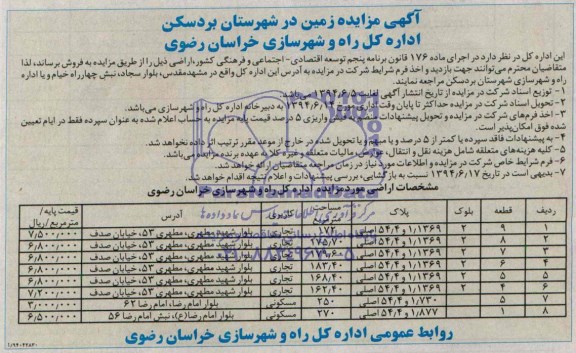 آگهی مزایده زمین در شهرستان بردسکن
اداره کل راه و شهرسازی خراسان رضوی
این اداره کل در نظر دارد در اجرای ماده ۱۷۶ قانون برنامه پنجم توسعه اقتصادی- اجتماعی و فرهنگی کشور، اراضی ذیل را از طریق مزایده به فروش برساند، لذا
متقاضیان محترم می‌توانند جهت بازدید و اخذ فرم شرایط شرکت در مزایده به آدرس این اداره کل واقع در مشهدمقدس، بلوار سجاد، نبش چهارراه خیام و یا اداره
راه و شهرسازی شهرستان بردسکن مراجعه نمایند.
۱- توزیع اسناد شرکت در مزایده از تاریخ انتشار آگهی لغایت ۱۳۹۴/۶/۵ می‌باشد.
۲- تحویل اسناد شرکت در مزایده حداکثر تا پایان وقت اداری مورخ ۱۳۹۴/۶/۱۲ به دبیرخانه اداره کل راه و شهرسازی می‌باشد.
۳- اخذ فرم‌های شرکت در مزایده و تحویل پیشنهادات منضم به فیش واریزی ۵ درصد قیمت پایه مزایده به حساب اعلام شده به عنوان سپرده فقط در ایام تعیین
شده فوق امکان‌پذیر است.
۴- به پیشنهادات فاقد سپرده یا کمتر از ۵ درصد و یا مبهم و یا تحویل شده در خارج از موعد مقرر ترتیب اثر داده نخواهد شد.
۵- کلیه هزینه‌های متعلقه شامل هزینه نقل و انتقال، عوارض، مالیات متعلقه و غیره کلا به عهده برنده مزایده می‌باشد.
۶- فرم شرایط خاص شرکت در مزایده و اطلاعات مورد نیاز در زمان مراجعه متقاضیان ارائه خواهد شد.
۷- بدیهی است در تاریخ ۱۳۹۴/۶/۱۷ نسبت به بازگشایی، بررسی پیشنهادات و اعلام نتیجه اقدام خواهد شد.
مشخصات اراضی مورد مزایده اداره کل راه و شهرسازی خراسان رضوی
ردیف قطعه بلوک پلاک مساحت کاربری آدرس قیمت پایه/ مترمربع/ریال
۱ ۹ ۲ ۱/۱۳۶۹ و ۵۴،۴ اصلی ۱۷۲ تجاری بلوار شهید مطهری، مطهری ۵۳، خیابان صدف ۷/۵۰۰/۰۰۰
۲ ۸ ۲ ۱/۱۳۶۹ و ۵۴،۴ اصلی ۱۷۵/۷۰ تجاری بلوار شهید مطهری، مطهری ۵۳، خیابان صدف ۶/۸۰۰/۰۰۰
۳ ۷ ۲ ۱/۱۳۶۹ و ۵۴،۴ اصلی تجاری بلوار شهید مطهری، مطهری ۵۳، خیابان صدف ۶/۸۰۰/۰۰۰
۴ ۶ ۲ ۱/۱۳۶۹ و ۵۴،۴ اصلی ۱۸۳/۴۰ تجاری بلوار شهید مطهری، مطهری ۵۳، خیابان صدف ۶/۸۰۰/۰۰۰
۵ ۵ ۲ ۱/۱۳۶۹ و ۵۴،۴ اصلی تجاری بلوار شهید مطهری، مطهری ۵۳، خیابان صدف ۶/۸۰۰/۰۰۰
۶ ۴ ۲ ۱/۱۳۶۹ و ۵۴،۴ اصلی ۱۶۲/۴۰ تجاری بلوار شهید مطهری، مطهری ۵۳، خیابان صدف ۷/۲۰۰/۰۰۰
۷ ۵ ۱/۷۳۰ و ۵۴،۴ اصلی ۲۵۰ مسکونی بلوار امام رضا، امام رضا ۶۲ ۳/۰۰۰/۰۰۰
۸ ۱ ۱/۸۷۷ و ۵۴،۴ اصلی ۲۷۰ مسکونی بلوار امام رضا(ع)، نبش امام رضا ۵۶ ۶/۵۰۰/۰۰۰
روابط عمومی اداره کل راه و شهرسازی خراسان رضوی